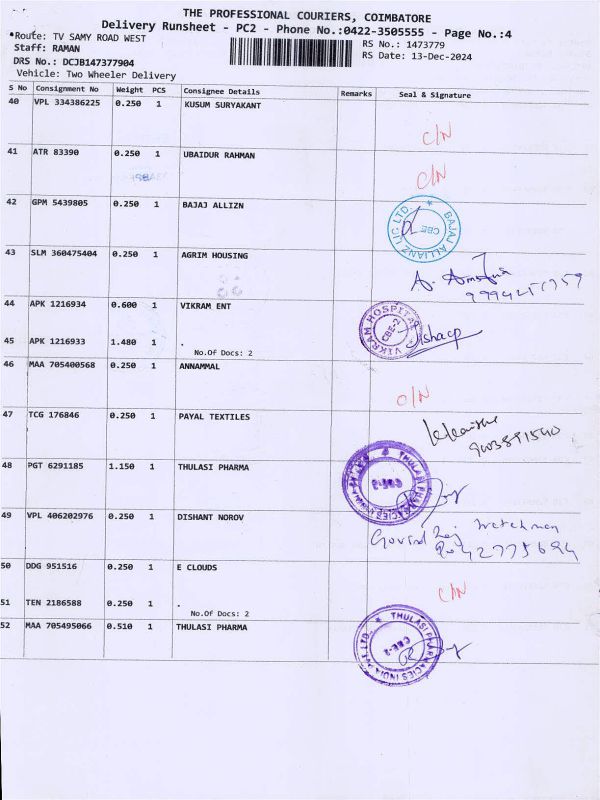 THE PROFESSIONAL COURIERS, COIMBATORE
Delivery Runsheet - PC2 - Phone No.:0422-3505555 - Page No.:4
Route: TV SAMY ROAD WEST
RS No.: 1473779
Staff: RAMAN
RS Date: 13-Dec-2024
DRS No.: DCJB147377904
Vehicle: Two Wheeler Delivery
S No Consignment No Weight PCS Consignee Details Remarks Seal & Signature
40 VPL 334386225 0.250 1 KUSUM SURYAKANT
C/N
41 ATR 83390 0.250 1 UBAIDUR RAHMAN
C/N
42 GPM 5439805 0.250 1 BAJAJ ALLIZN
BAJAJ ALLIANZ LIC LTD. CBE
43 SLM 360475404 0.250 1 AGRIM HOUSING
44 APK 1216934 0.600 1 VIKRAM ENT
VIKRAM HOSPITAL CBE-2
45 APK 1216933 1.480 1 .
No.Of Docs: 2
46 MAA 705400568 0.250 1 ANNAMMAL
C/N
47 TCG 176846 0.250 1 PAYAL TEXTILES
48 PGT 6291185 1.150 1 THULASI PHARMA
THULASI PHARMACIES INDIA PVT LTD. CBE-2
49 VPL 406202976 0.250 1 DISHANT NOROV
Govind Raj
50 DDG 951516 0.250 1 E CLOUDS
C/N
51 TEN 2186588 0.250 1 .
No.Of Docs: 2
52 MAA 705495066 0.510 1 THULASI PHARMA
THULASI PHARMACIES INDIA PVT LTD. CBE-2